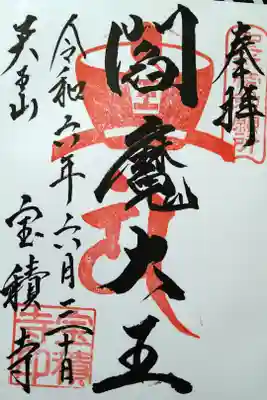 奉拝
閻魔大王
令和六年六月二十日
天王山
宝積寺
王
寶積寺印